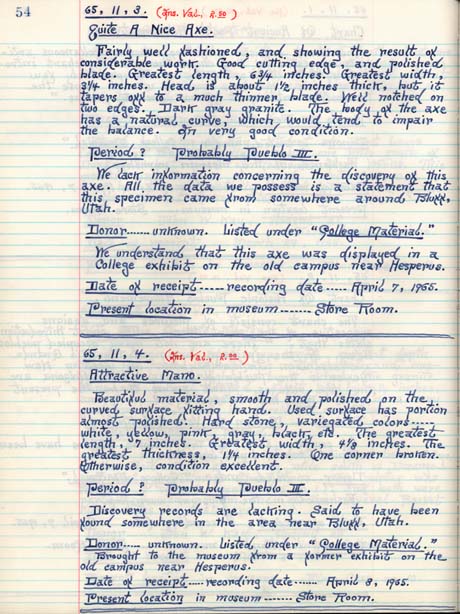 54
65, 11, 3. (Ins. Val., 2.00)
Quite A Nice Axe.
Fairly well fashioned, and showing the result of
considerable work. Good cutting edge, and polished
blade. Greatest length, 6 3/4 inches. Greatest width,
3 1/4 inches. Head is about 1 1/2 inches thick, but it
tapers off to a much thinner blade. Well notched on
two edges. Dark gray granite. The body of the axe
has a natural curve, which would tend to impair
the balance. In very good condition.
Period? Probably Pueblo III.
We lack information concerning the discovery of this
axe. All the data we possess is a statement that
this specimen came from somewhere around Bluff,
Utah.
Donor...... unknown. Listed under "College Material."
We understand that this axe was displayed in a
College exhibit on the old campus near Hesperus.
Date of receipt----- recording date ----- April 7, 1965.
Present location in museum ------- Store Room.
65, 11, 4. (Ins. Val., 2.00)
Attractive Mano.
Beautiful material, smooth and polished on the
curved surface fitting hand. Used surface has portion
almost polished. Hard stone, variegated colors-----
white, yellow, pink, gray, black, etc. The greatest
length, 7 inches. Greatest width, 4 1/8 inches. The
greatest thickness, 1 1/4 inches. One corner broken.
Otherwise, condition excellent.
Period? Probably Pueblo III.
Discovery records are lacking. Said to have been
found somewhere in the area near Bluff, Utah.
Donor..... unknown. Listed under "College Material."
Brought to the museum from a former exhibit on the
old campus near Hesperus.
Date of receipt---- recording date ------ April 8, 1965.
Present location in museum ------ Store Room.